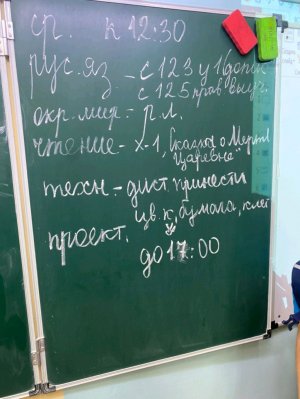 ср. к 12:30
рус.яз - с 123 у 1 допол
с 125 прав выуч.
окр.мир - р.л.
чтение - х-1, Сказка о Мертв
Царевне
техн. - дист. принести
цв к, бумага, клей
проект.
до 17:00